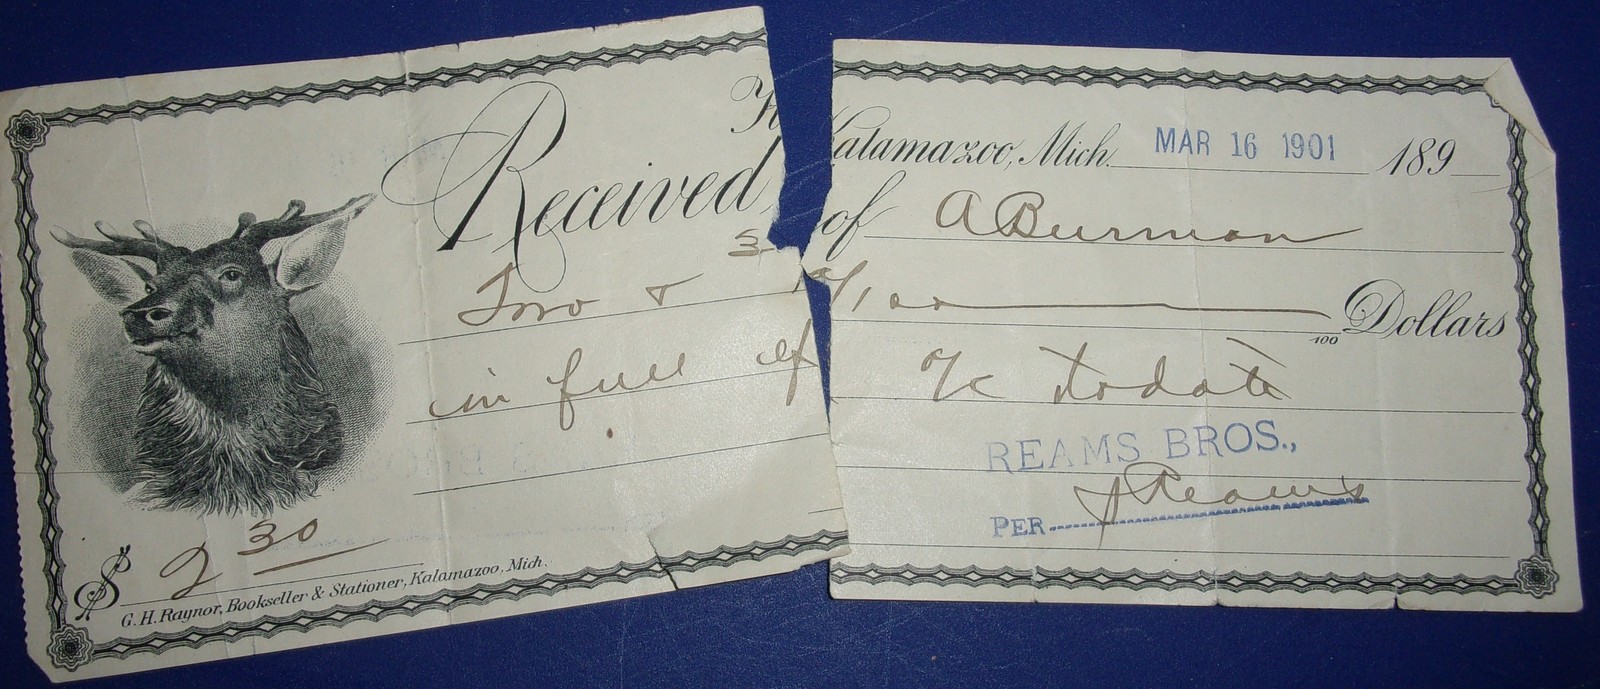 Kalamazoo, Mich. MAR 16 1901 189
Received of A Burman
Two & 30/100 Dollars
100
in full of a/c to date
REAMS BROS.,
PER Reams
$ 2 30
G. H. Raynor, Bookseller & Stationer, Kalamazoo, Mich.